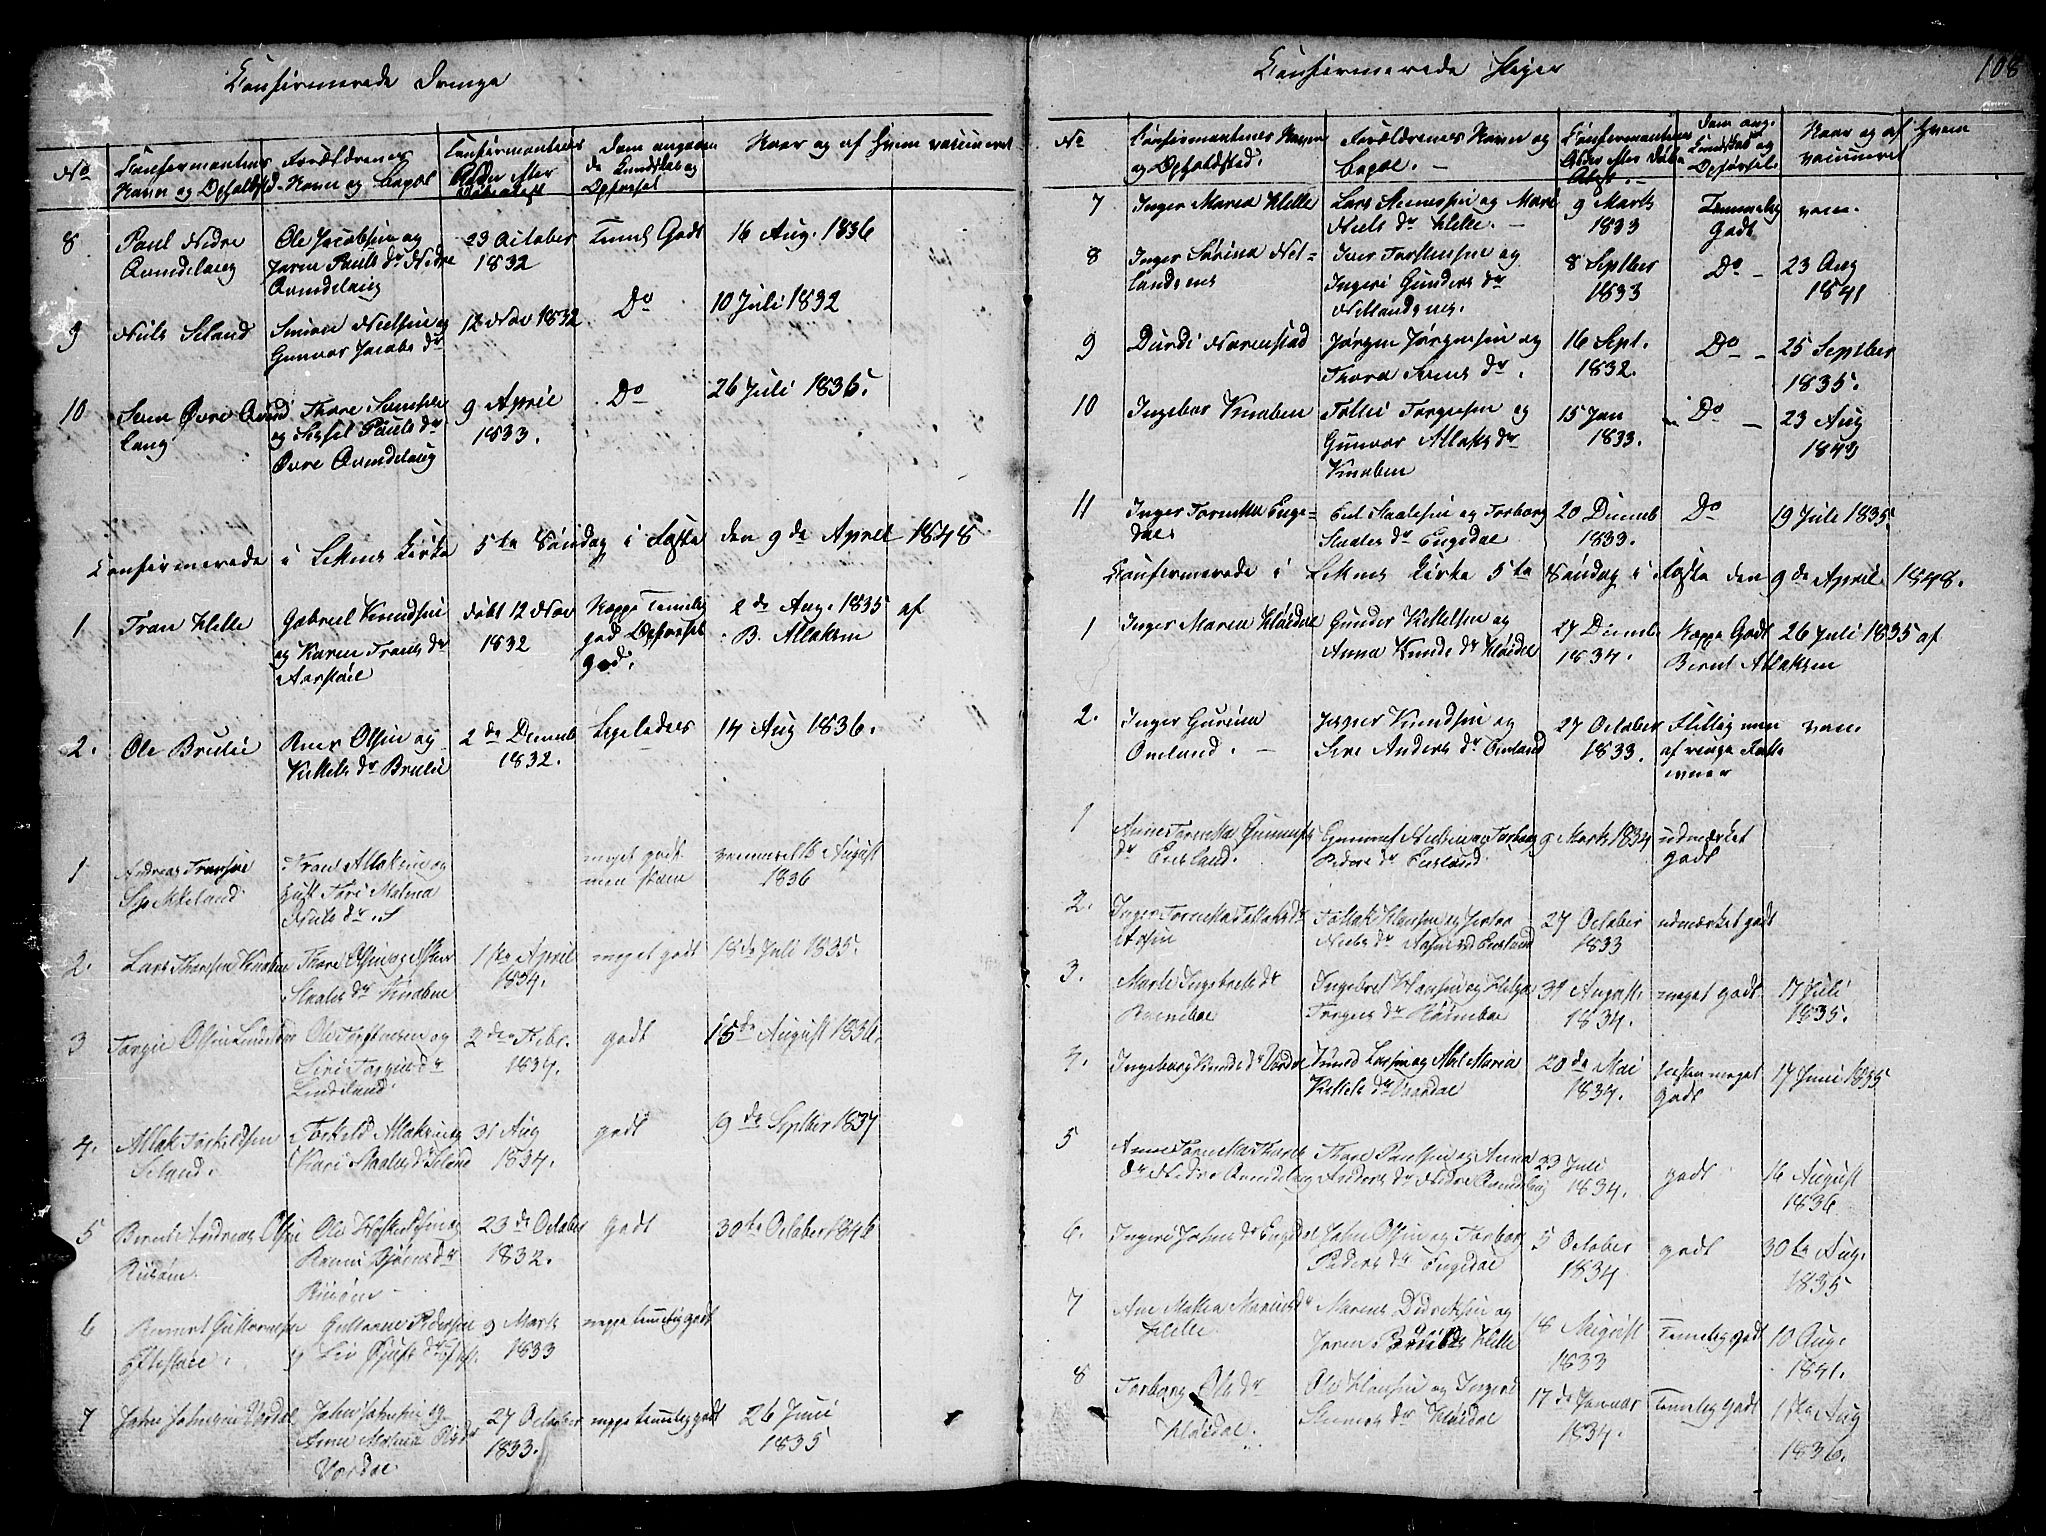 Confirmerede Drenge
No
Confirmantens
Navn og Opholdsted
Forældrenes
Navn og Bopæl
Confirmantens
Alder efter
Døbeattest
Dom angaaen
de Kundskab og
Opførsel
Naar og af Hvem vaccineret
8
Paul Nedre
Qvindelaug
Ole Jacobsen og
Joren Pauls dr Nedre
Qvindelaug
23 October
1832
Teml Godt
16 Aug. 1836
9
Niels Seland
Nielsen og
Gunvor Jacobs dr
12 Nov 1832
Do
10 Juli 1832
10
Sven Øvre Qvind
laug
Thore Svensen
og Sissel Pauls dr
Øvre Qvindelaug
9 April
1833.
Do
26 Juli 1836.
Confirmerede i Lekens Kirke 5te Søndag i Faste den 9de April 1848
1
Tron Helle
Gabriel Knudsen
og Karen Trons dr
Aarstøie
døbt 12 Nov
1832
Kappe Temelig
god Opførsel
God.
2de Aug. 1835 af
B. Allaksen
2.
Ole Brulii
Olsen og
Kittels dr Brulii
2de Decemb
1832.
Ligeledes
14 Aug 1836.
1
Andreas Tronsen
Skekkeland
Tron Allaksen og
Hust. Tori Malena
Niels dr. S
meget godt
men
vaccineret 16 August
1836
2.
Lars Thoresen Knaben
Thore Olsen og
Staales dr Knaben
1ste April
1834.
meget godt
18de Juli 1835.
3
Torgie Olsen Lindeland
Ole Torgiersen og
Siri Torgiers dr
Lindeland
2den Febr.
1834.
godt
15de August 1836.
4.
Allak Torkeldsen
Seland.
Torkeld Allaksen og
Kari Staales dr Seland
31 Aug
1834.
godt
9de Septber 1837
5
Bernt Andreas Olsen
Risøen
Ole
Bjørns dr
Risøen
23de October
1832.
godt
30te October 1846
6
Gustavsen
Eftestøie.
Pedersen
og Liv
9 Marts
1833
neppe temelig godt
7
John Johnsen Vordal
John Johnsen og
Anne Malene
Vordal
27 October
1833.
neppe temelig godt
26 Juni
1835
Confirmerede Piger
108
No
Confirmantenes Navn
og Opholdsted.
Forældrenes Navn og
Bopæl. –
Confirmantens
Alder efter Døbe
Attest. –
Dom ang.
Kundskab og
Opførsel.
Naar og af Hvem
vaccineret
7
Inger Maria Helle
Lars Steenersen og Mari
Niels dr Helle. –
9 Marts
1833
Temmelig
Godt
vacc.
8
Inger Sørina Net-
landsnes
Iver Torstensen og
Ingeri Gunders dr
Netlandsnes.
8 Septber
1833
Do –
23 Aug
1841
9
Durdi Narvestad
Jørgen Jørgensen og
Thora Svens dr.
16 Sept.
1832.
Do –
25 Septber
1835.
10
Ingebor Knaben
Tollei Torgersen og
Gunvor Allaks dr
Knaben
15 Jan
1833.
Do –
23 Aug
1843
11
Inger Tornelia Enge-
dal
Staalesen og Torborg
Staales dr Engedal
20 Decemb
1833.
Do
19 Juli 1835
Confirmerede i Lekens Kirke 5te Søndag i Faste den 9de April 1848.
1
Inger Maria Kloidal
Gunder Kittelsen og
Anna Knuds dr Kloidal
27 Decemb
1834.
Kappe Godt
26 Juli 1835 af
Bernt Allaksen
2.
Inger Gurina
Omland. –
Knudsen og
Siri Anders dr Omland
27 October
1833.
Flittig men
af ringe Fatte
evner
vacc.
1
Anne Tornelia Gunnufs
dr Eiesland.
Gunnuf Nielsen og Torborg
Peders dr Eiesland.
9 Marts 1834
udmærket
godt
2.
Inger Tornelia Tollaks dr
Aasen
Tollak Hansen og
Niels dr Aasen Eiesland
27 October
1833
udmærket godt
3.
Marte Ingebrets dr
Røinebae
Ingebret Hansen og Helga
Torgers dr Røinebae
31 August
1834.
meget godt
17 Juli
1835.
4.
Ingeborg Knuds dr Vordal
Knud Larsen og Abel Maria
Kittels dr Vordal
20de Mai
1834.
næsten meget
Godt
17 Juni 1835
5
Anne Tornelia Thores
dr Nedre Qvindelaug
Thore Paulsen og Anna
Anders dr Nedre Qvindelaug
23 Juli
1834.
godt
16 August
1836
6.
Ingeri Johns dr Engedal
John Olsen og Torbor
Peders dr Engedal
5 October
1834
godt
30te Aug.
1835
7
Ane Malena
Helle
Didriksen og
Joren Helle
18 August
1833
Temelig godt
10 Aug.
1841.
8
Torborg Ols dr
Kloidal.
Ole Hansen og Ingeri
Steeners dr Kloidal
17de Januar
1834.
Temelig godt
17de Aug
1836.